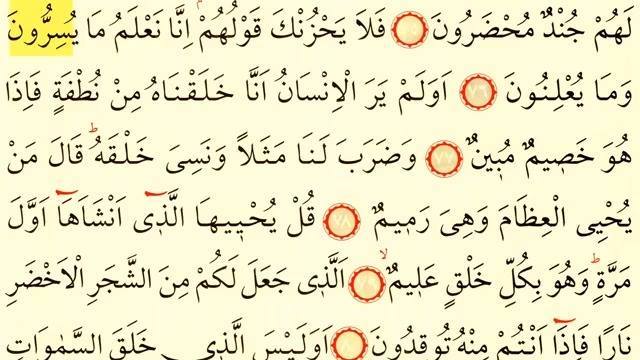 لَهُمْ جُنْدٌ مُحْضَرُونَ ﴿٧٥﴾ فَلَا يَحْزُنْكَ قَوْلُهُمْ اِنَّا نَعْلَمُ مَا يُسِرُّونَ
وَمَا يُعْلِنُونَ ﴿٧٦﴾ اَوَلَمْ يَرَ الْاِنْسَانُ اَنَّا خَلَقْنَاهُ مِنْ نُطْفَةٍ فَاِذَا
هُوَ خَص۪يمٌ مُب۪ينٌ ﴿٧٧﴾ وَضَرَبَ لَنَا مَثَلًا وَنَسِىَ خَلْقَهُ قَالَ مَنْ
يُحْيِى الْعِظَامَ وَهِىَ رَم۪يمٌ ﴿٧٨﴾ قُلْ يُحْي۪يهَا الَّذ۪ٓى اَنْشَاَهَٓا اَوَّلَ
مَرَّةٍ وَهُوَ بِكُلِّ خَلْقٍ عَل۪يمٌ ﴿٧٩﴾ اَلَّذ۪ى جَعَلَ لَكُمْ مِنَ الشَّجَرِ الْاَخْضَرِ
نَارًا فَاِذَٓا اَنْتُمْ مِنْهُ تُوقِدُونَ ﴿٨٠﴾ اَوَلَيْسَ الَّذ۪ى خَلَقَ السَّمٰوَاتِ